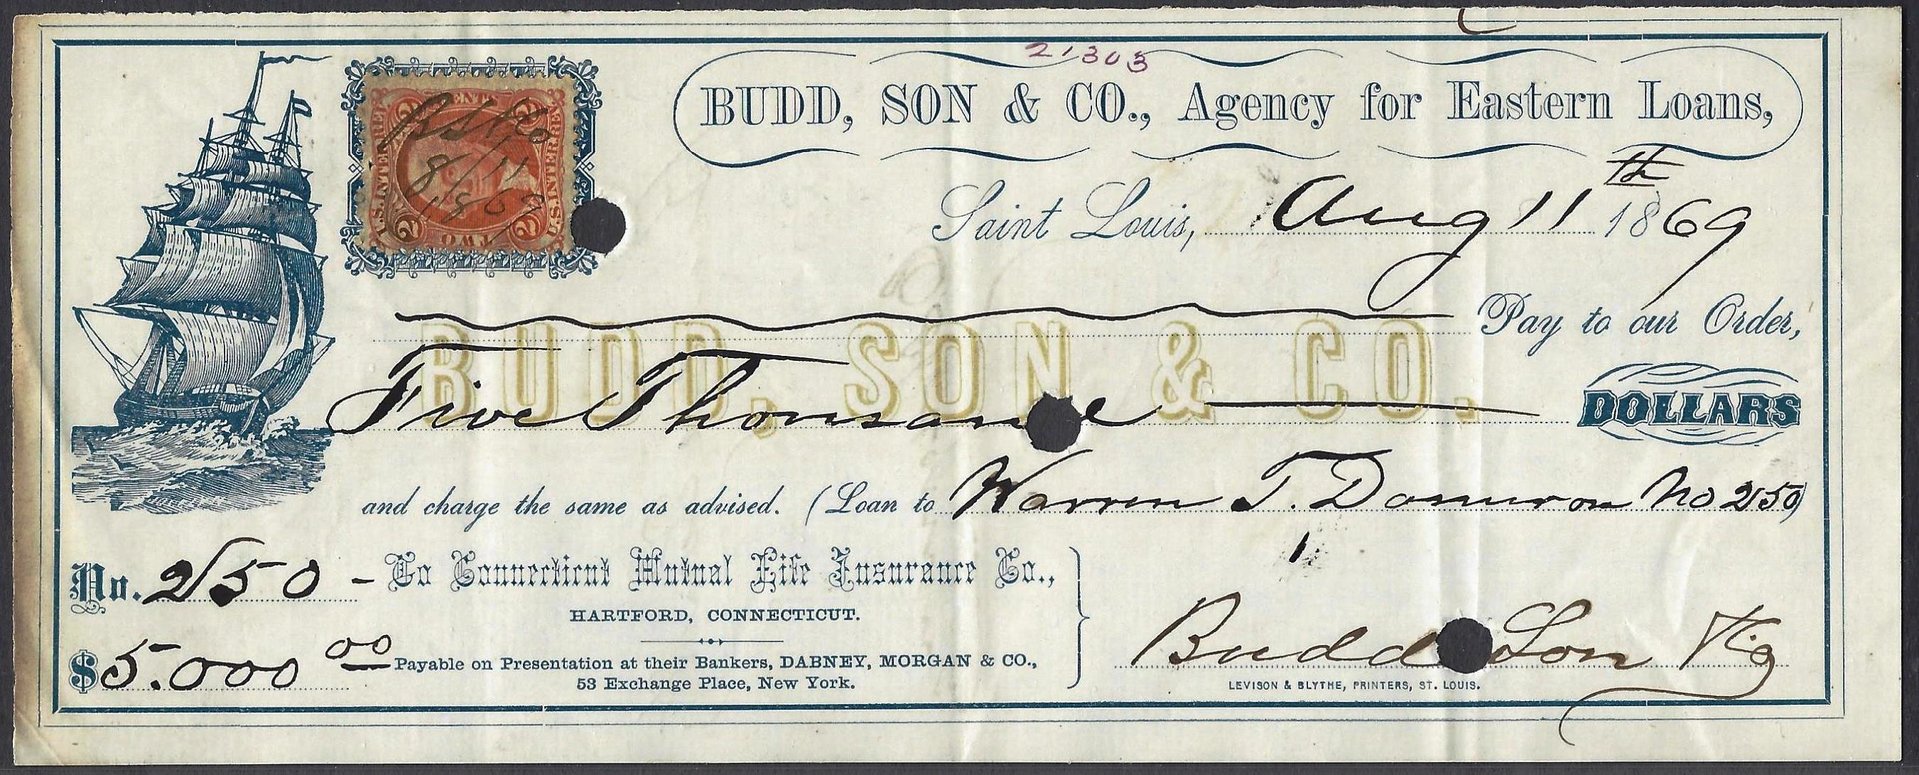 21303
BUDD, SON & CO., Agency for Eastern Loans,
Saint Louis, Aug 11th 1869
U.S. INTER. REV.
TWO CENTS
2 2 2 2
BS&Co
8/11
1869
Pay to our Order,
BUDD, SON & CO.
Five Thousand DOLLARS
and charge the same as advised. (Loan to Warren T. No 250)
No. 250 - To Connecticut Mutual Life Insurance Co.,
HARTFORD, CONNECTICUT.
$5.000 00
Payable on Presentation at their Bankers, DABNEY, MORGAN & CO.,
53 Exchange Place, New York.
Budd Son & Co
LEVISON & BLYTHE, PRINTERS, ST. LOUIS.